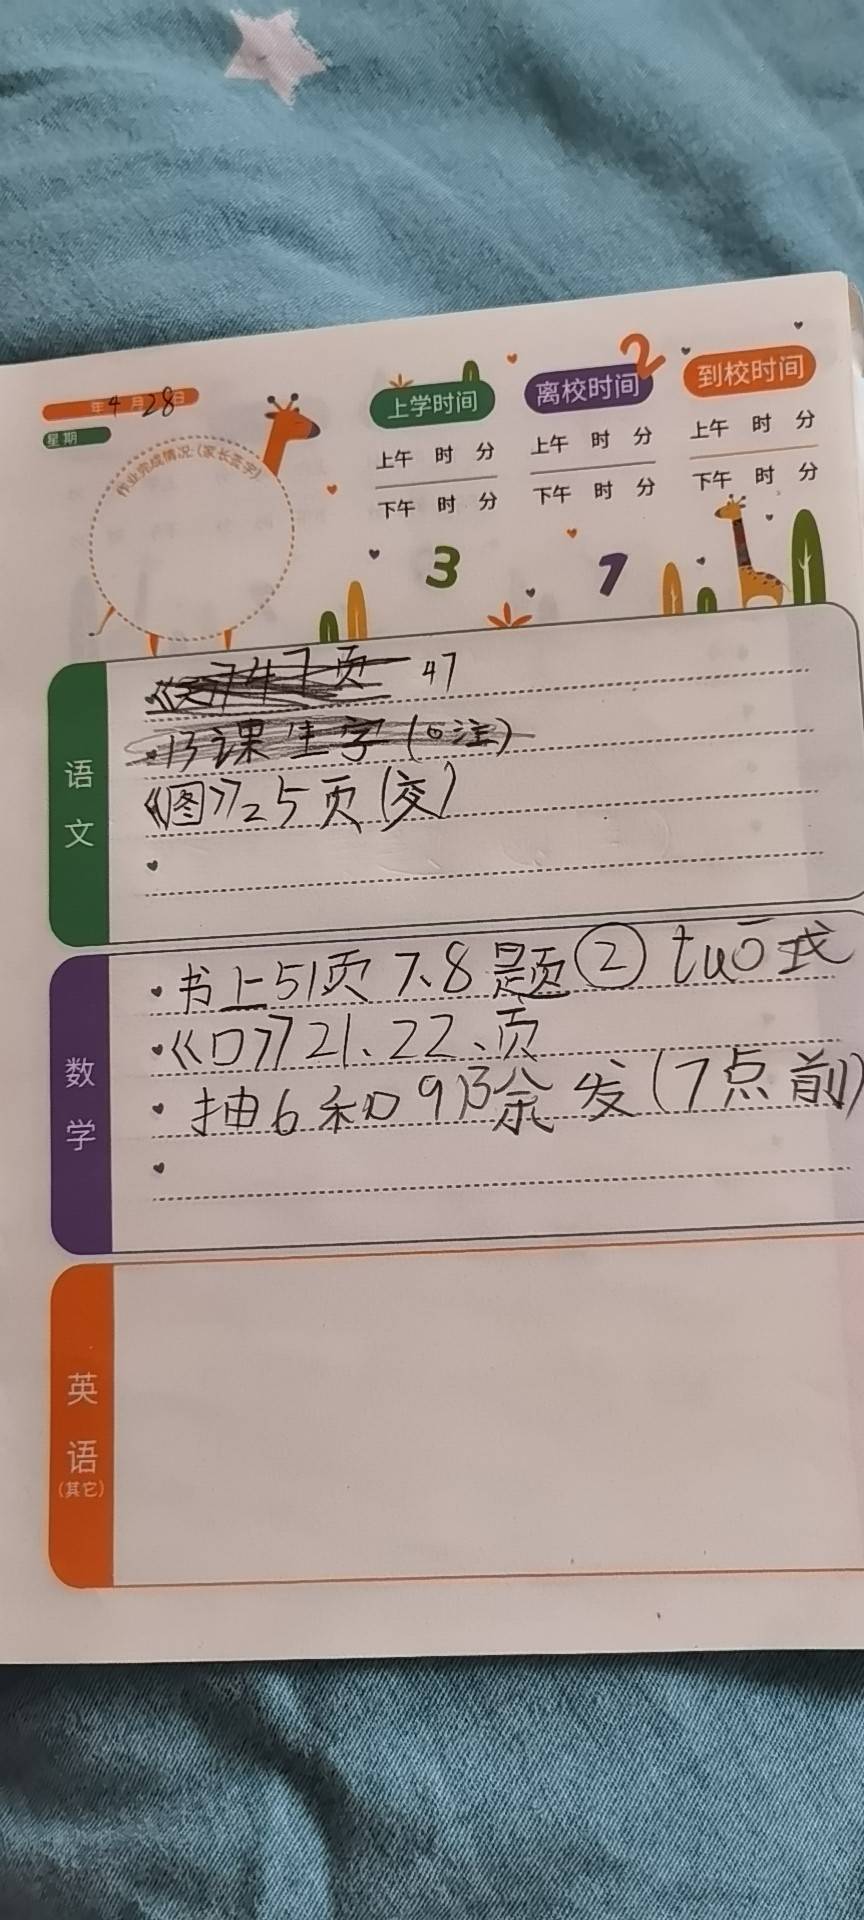 年4月28日
星期
作业完成情况:(家长签字)
上学时间
上午 时 分
下午 时 分
离校时间
上午 时 分
下午 时 分
到校时间
上午 时 分
下午 时 分
2
3
7
语文
47页 47
·13课生字(注)
《图》25页(交)
数学
·书上51页7、8题② tuō式
·《口》21、22、页
·抽6和9除发(7点前)
英语
(其它)